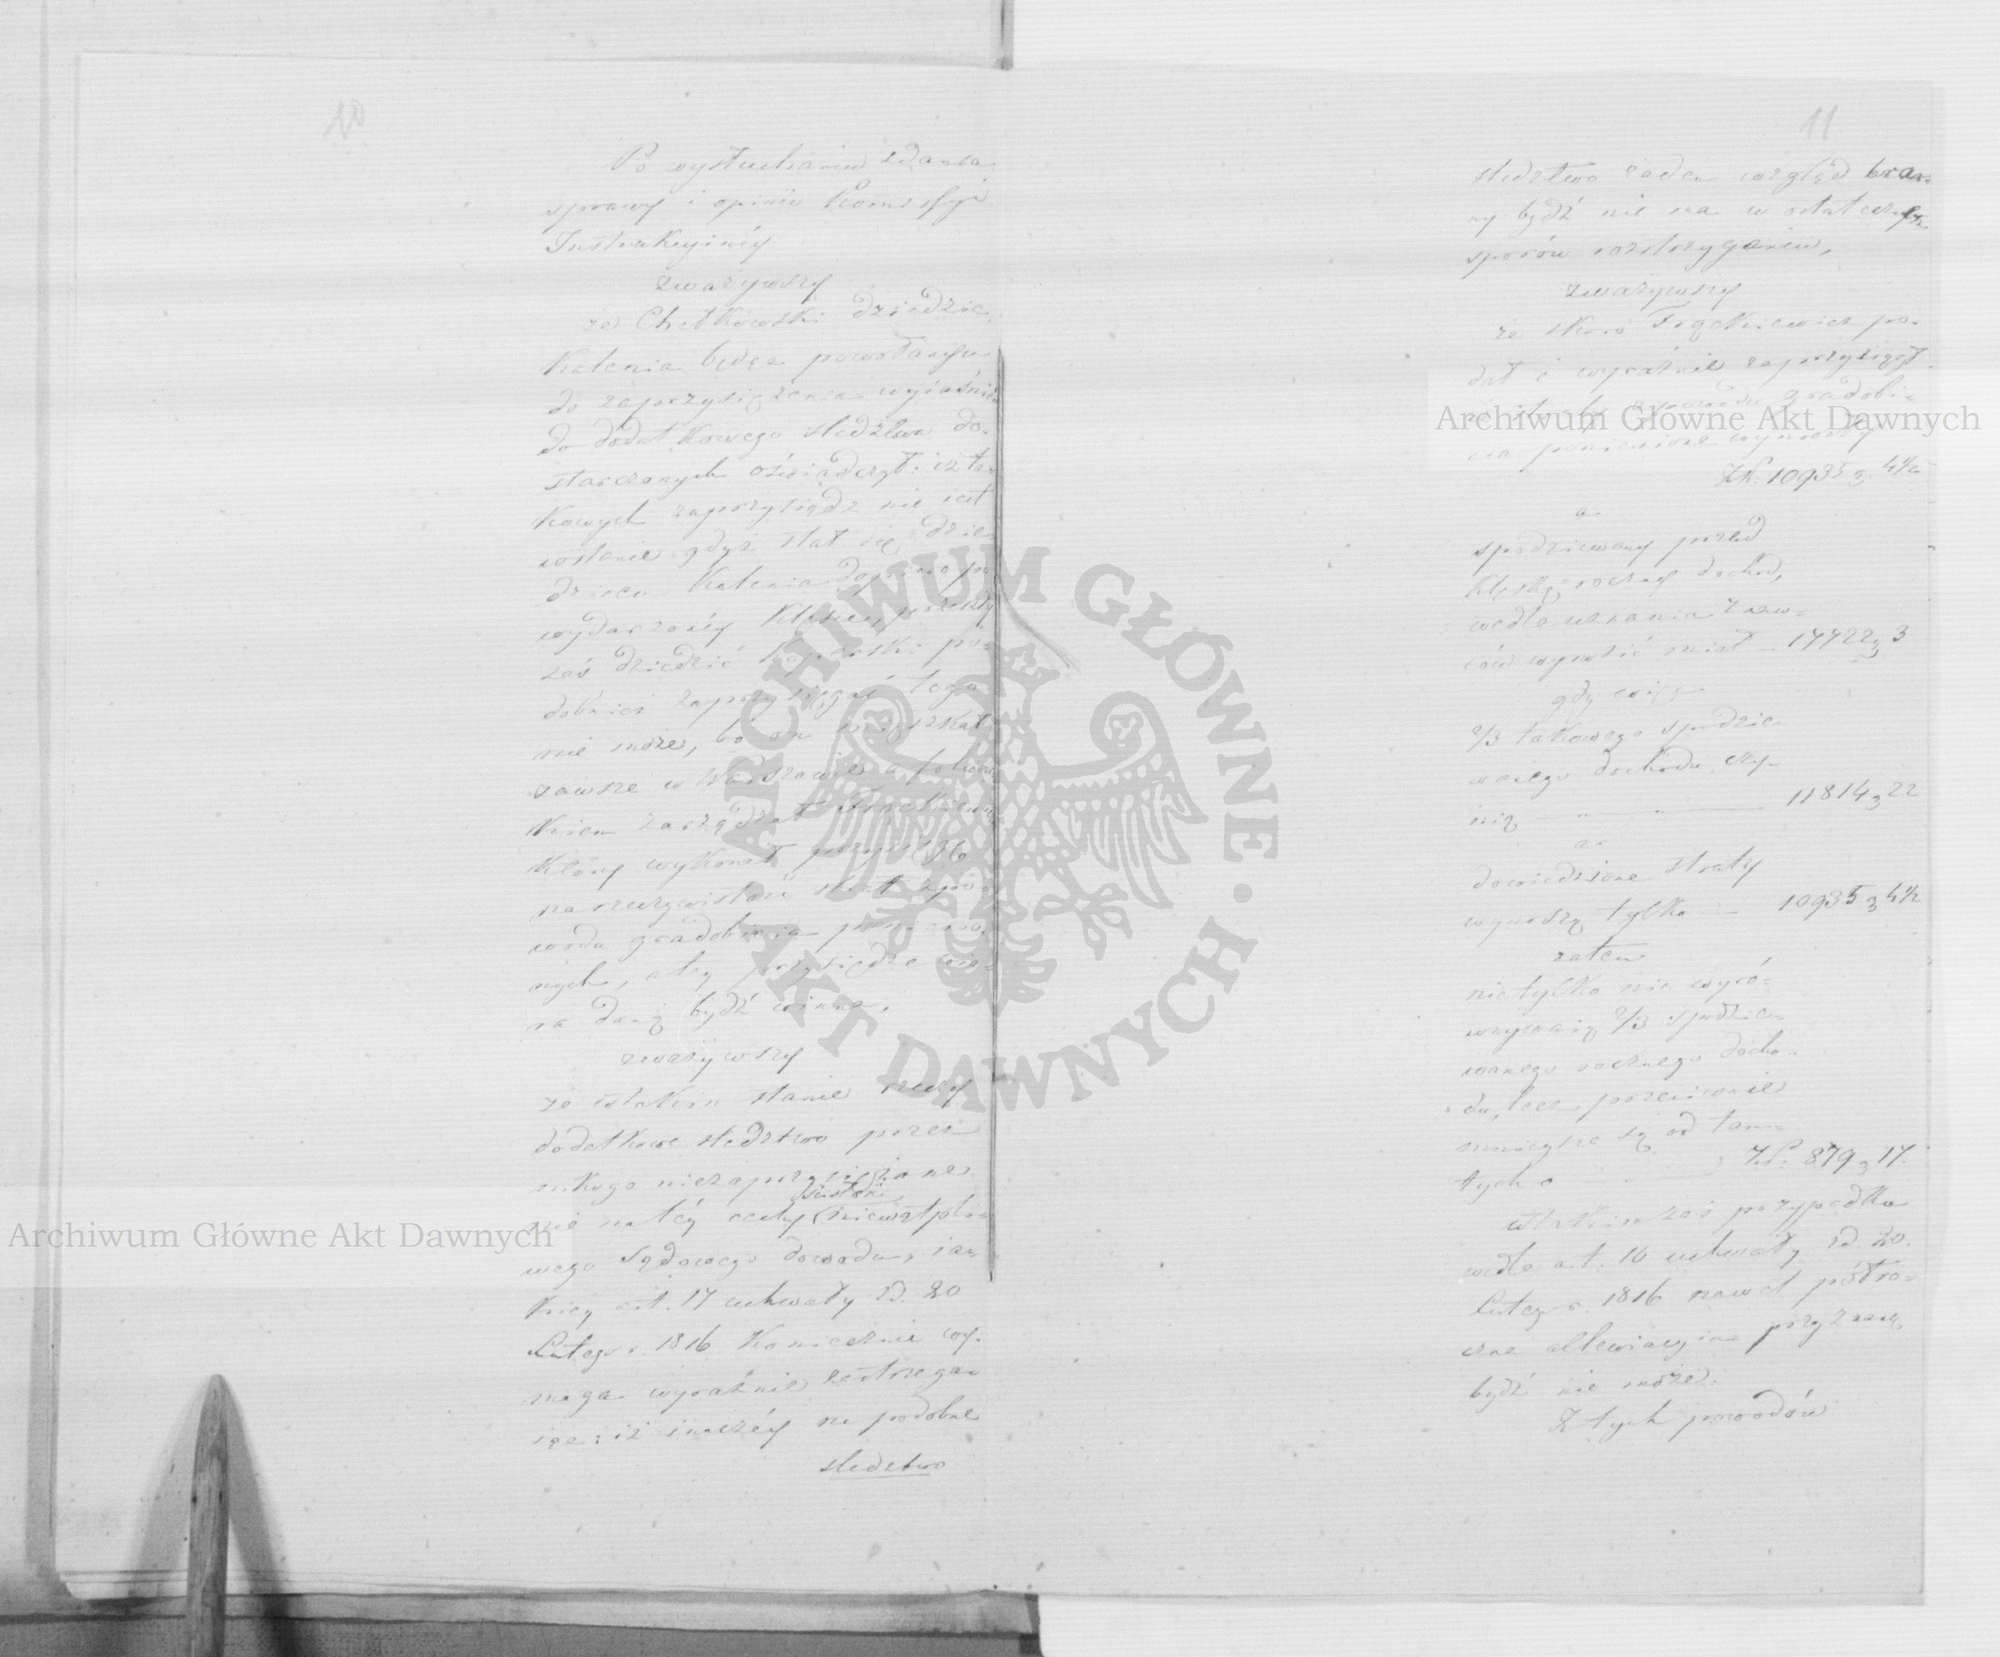 10
Po wysłuchaniu zdania
sprawy i opinii Kommissyi
Instrukcyinéy
zważywszy
że Chełkowski dziedzic
Kalenia będąc powołanym
do zaprzysiężenia wyiaśnień
do dodatkowego śledztwa do-
starczonych oświadczył: iż ta-
kowych zaprzysiądz nie iest
wstanie gdyż stał się dzie-
dzicem Kalenia dopiero po
wydarzonéy klęsce, przeszły
zaś dziedzic po-
dobnież zaprzysięgać tego
nie może, bo on mieszkał
zawsze w Warszawie a folwar-
kiem zarządzał
który wykonał przysięgę
na rzeczywistość strat z po-
wodu gradobicia poniesio-
nych, a tey przysiędze wia-
ra daną bydź winna,
zważywszy
że w takim stanie rzeczy
dodatkowe śledztwo przez
nikogo niezaprzysiężone
nie ma téy cechy niewątpli-
wego Sądowego dowodu, ia-
kiéy art. 17 uchwały z d. 20
Lutego r. 1816 koniecznie wy-
maga wyraźnie zastrzega-
iąc: iż inaczéy na podobne
śledztwo
11
śledztwo żaden wzgląd bra-
ny bydź nie ma w ostateczném
sporów rozstrzyganiu,
zważywszy
że skoro Frąckiewicz po-
dał i wyraźnie zaprzysiągł
iż straty z powodu gradobi-
cia poniesione wynoszą
Zł. 10935 g 4½
a
spodziewany przed
klęską roczny dochód,
wedle uznania znaw-
ców wynosić miał — 17722 g 3
gdy więc
2/3 takowego spodzie-
wanego dochodu czy-
nią — " — 11814 g 22
a
dowiedzione straty
wynoszą tylko — 10935 g 4½
zatem
nietylko nie wyró-
wnywaią 2/3 spodzie-
wanego rocznego docho-
du, lecz przeciwnie
mnieysze są od tam-
tych o — Zł: 879 g 17.
w takim zaś przypadku
wedle art. 16 uchwały z d. 20.
Lutego r. 1816 nawet półro-
czna allewiacyia przyznaną
bydź nie może.
Z tych powodów
Archiwum Główne Akt Dawnych
Archiwum Główne Akt Dawnych
ARCHIWUM GŁÓWNE
AKT DAWNYCH